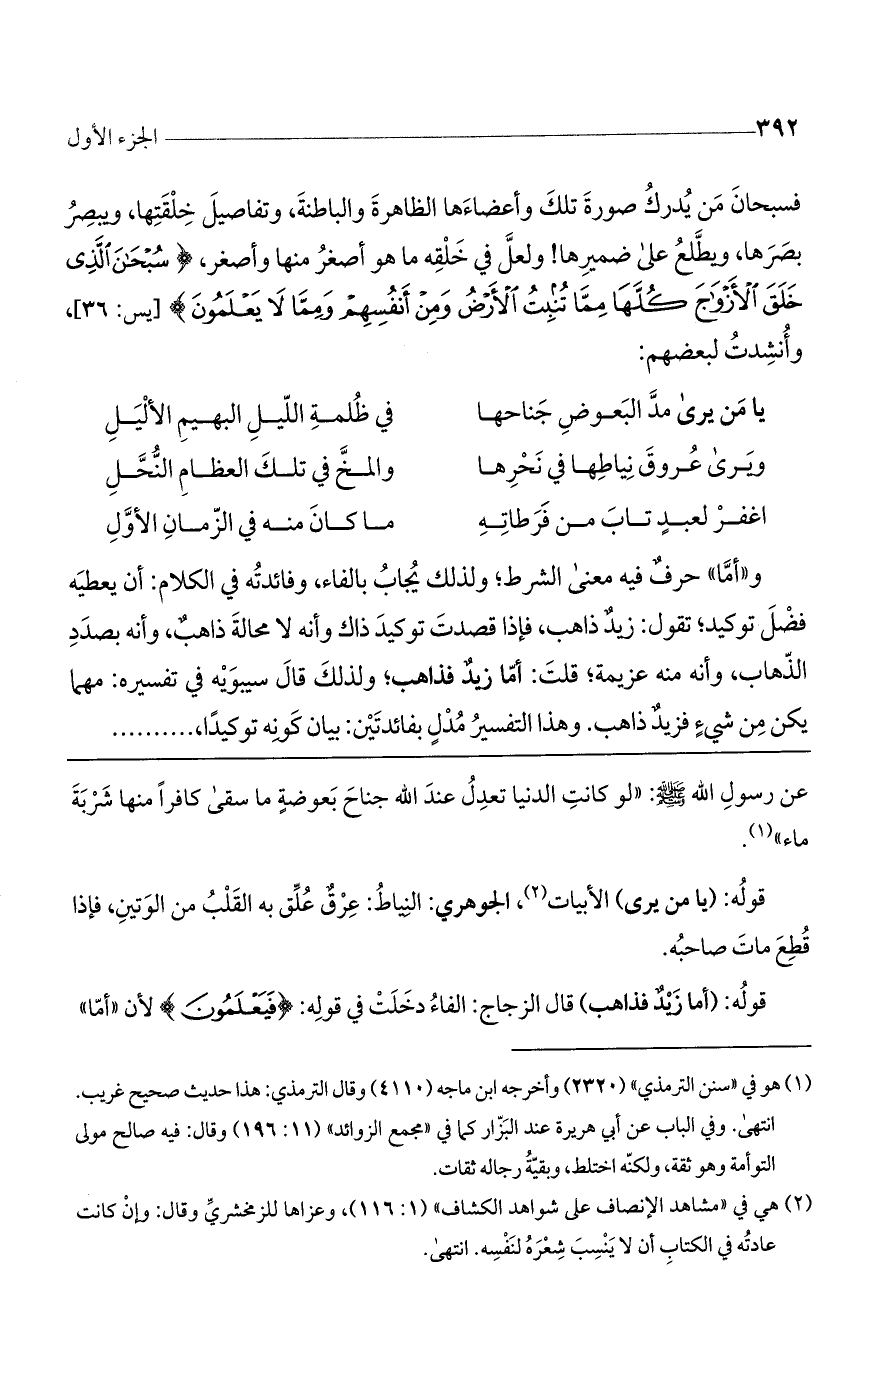 ٣٩٢ الجزء الأول
فسبحانَ مَن يُدركُ صورةَ تلكَ وأعضاءَها الظاهرةَ والباطنةَ، وتفاصيلَ خِلْقَتِها، ويبصِرُ
بصَرَها، ويطَّلعُ علىٰ ضميرِها! ولعلَّ في خَلْقِه ما هو أصغرُ منها وأصغر، ﴿ سُبْحَٰنَ ٱلَّذِى
خَلَقَ ٱلْأَزْوَٰجَ كُلَّهَا مِمَّا تُنۢبِتُ ٱلْأَرْضُ وَمِنْ أَنفُسِهِمْ وَمِمَّا لَا يَعْلَمُونَ ﴾ [يس: ٣٦]،
وأُنشِدتُ لبعضهم:
يا مَن يرىٰ مدَّ البَعـوضِ جَناحهـا في ظُلمـةِ اللّيـلِ البهـيمِ الألْيَـلِ
ويَـرىٰ عُـروقَ نِياطِهـا في نَحْرِهـا والمـخَّ في تلـكَ العظـامِ النُّحَّـلِ
اغفـرْ لعبـدٍ تـابَ مـن فَرَطاتِـهِ مـا كـانَ منـه في الزّمـانِ الأوَّلِ
و«أمَّا» حرفٌ فيه معنىٰ الشرط؛ ولذلك يُجابُ بالفاء، وفائدتُه في الكلام: أن يعطيَه
فضْلَ توكيد؛ تقول: زيدٌ ذاهب، فإذا قصدتَ توكيدَ ذاك وأنه لا محالةَ ذاهبٌ، وأنه بصدَدِ
الذّهاب، وأنه منه عزيمة؛ قلتَ: أمّا زيدٌ فذاهب؛ ولذلكَ قالَ سيبوَيْه في تفسيره: مهما
يكن مِن شيءٍ فزيدٌ ذاهب. وهذا التفسيرُ مُدْلٍ بفائدتَيْن: بيان كَونِه توكيدًا،..........
عن رسولِ الله ﷺ: «لو كانتِ الدنيا تعدِلُ عندَ الله جناحَ بَعوضةٍ ما سقىٰ كافراً منها شَرْبَةَ
ماء»(١).
قولُه: (يا من يرى) الأبيات(٢)، الجوهري: النِياطُ: عِرْقٌ عُلِّق به القَلْبُ من الوَتينِ، فإذا
قُطِعَ ماتَ صاحبُه.
قولُه: (أما زَيْدٌ فذاهب) قال الزجاج: الفاءُ دخَلَتْ في قولِه: ﴿فَيَعْلَمُونَ ﴾ لأن «أمّا»
(١) هو في «سنن الترمذي» (٢٣٢٠) وأخرجه ابن ماجه (٤١١٠) وقال الترمذي: هذا حديث صحيح غريب.
انتهىٰ. وفي الباب عن أبي هريرة عند البَزّار كما في «مجمع الزوائد» (١١: ١٩٦) وقال: فيه صالح مولى
التوأمة وهو ثقة، ولكنّه اختلط، وبقيّةُ رجاله ثقات.
(٢) هي في «مشاهد الإنصاف على شواهد الكشاف» (١: ١١٦)، وعزاها للزمخشريِّ وقال: وإنْ كانت
عادتُه في الكتابِ أن لا يَنْسِبَ شِعْرَهُ لنَفْسِه. انتهىٰ.